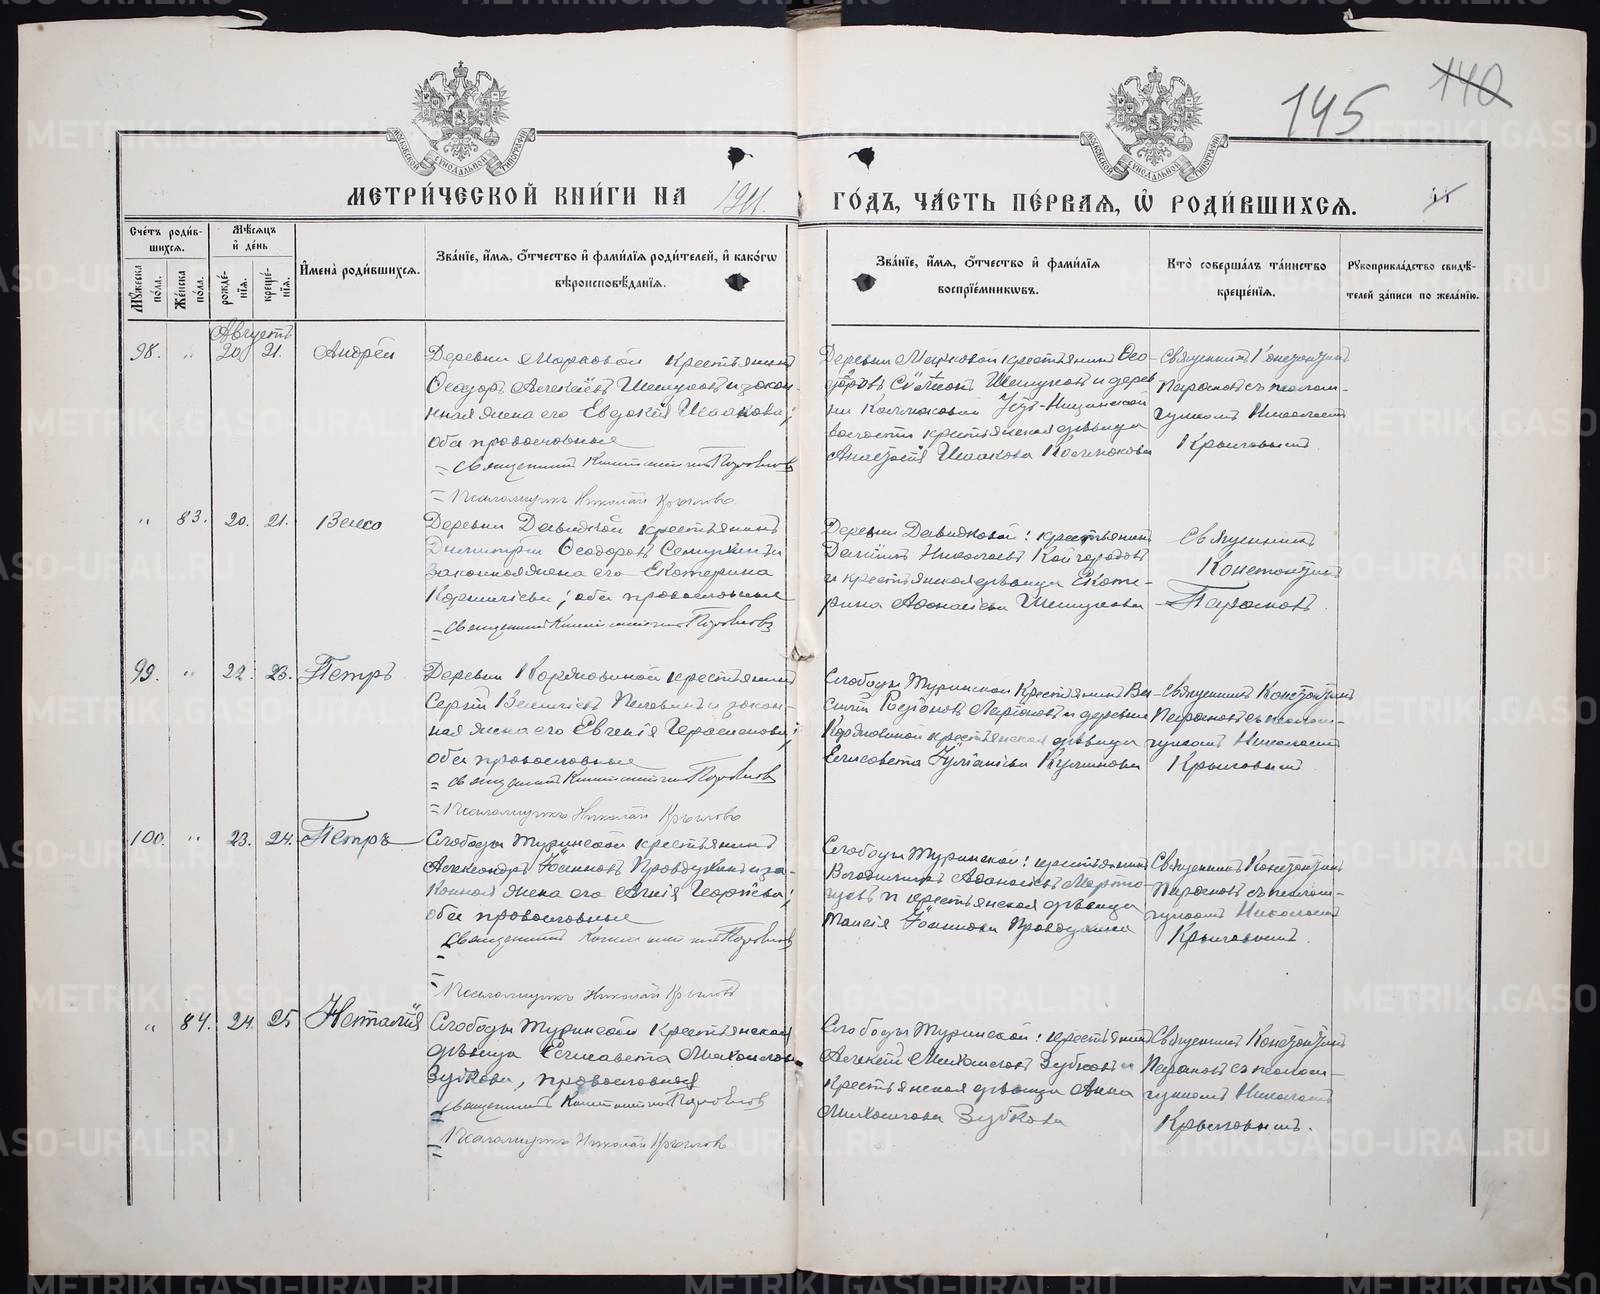 145
140
МОСКОВСКОЙ СѴНОДАЛЬНОЙ ТИПОГРАФІИ
МОСКОВСКОЙ СѴНОДАЛЬНОЙ ТИПОГРАФІИ
МЕТРИ́ЧЕСКОЙ КНИ́ГИ НА 1911. ГО́ДЪ, ЧА́СТЬ ПЕ́РВАЯ, Ѡ҆ РОДИ́ВШИХСЯ.
Сче́тъ роди́в-
шихся.
Мꙋ́жеска по́ла.
Же́нска по́ла.
Мѣ́сяцъ
и҆ де́нь
рожде́-
нїя.
креще́-
нїя.
И҆мена̀ роди́вшихся.
Зва́нїе, и҆́мя, ѻ҆́тчество и҆ фами́лїя роди́телей, и҆ како́гѡ
вѣроисповѣ́данїя.
Зва́нїе, и҆́мя, ѻ҆́тчество и҆ фами́лїя
воспрїе́мникѡвъ.
Кто̀ соверша́лъ та́инство
креще́нїя.
Рꙋкоприкла́дство свидѣ́-
телей за́писи по жела́нїю.
Августъ
98. „ 20 21. Андрей
Деревни Марковой крестьянинъ
Ѳеодоръ Алексѣевъ Шешуковъ и закон-
ная жена его Евдокія Исаакова;
оба православные
= Священникъ Константинъ
= Псаломщикъ Николай Крыловъ
Деревни Марковой крестьянинъ Ѳео-
Шешуковъ и дерев
ни Калмаковой Усть-Ницинской
волости крестьянская дѣвица
Анастасія Исаакова Калмакова
Священникъ Константинъ
съ псалом-
щикомъ Николаемъ
Крыловымъ
„ 83. 20. 21. Васса
Деревни Давыдовой крестьянинъ
Димитрій Ѳеодоровъ и
законная жена его Екатерина
Корниліева; оба православные
= Священникъ Константинъ
Деревни Давыдовой: крестьянинъ
Даніилъ Николаевъ Кайгородовъ
и крестьянская дѣвица Екате-
рина Аѳанасіева Шешукова
Священникъ
Константинъ
99. „ 22. 23. Петръ
Деревни крестьянинъ
Сергій Васильевъ и закон-
ная жена его Евгенія Герасимова;
оба православные
= Священникъ Константинъ
= Псаломщикъ Николай Крылова
Слободы Туринской крестьянинъ Ва-
силій Родіоновъ Ларіоновъ и деревни
крестьянская дѣвица
Елисавета Іуліаніева
Священникъ Константинъ
съ псалом-
щикомъ Николаемъ
Крыловымъ
100. „ 23. 24. Петръ
Слободы Туринской крестьянинъ
Александръ Іоанновъ и за-
конная жена его Агнія Георгіева;
оба православные
Священникъ Константинъ
= Псаломщикъ Николай Крыловъ
Слободы Туринской: крестьянинъ
Аѳанасіевъ
и крестьянская дѣвица
Таисія Іоаннова
Священникъ Константинъ
съ псалом-
щикомъ Николаемъ
Крыловымъ.
„ 84. 24. 25 Наталія
Слободы Туринской крестьянская
дѣвица Елисавета Михайлова
Зубкова, православная
= Священникъ Константинъ
= Псаломщикъ Николай Крыловъ
Слободы Туринской: крестьянинъ
Алексѣй Михайловъ Зубковъ и
крестьянская дѣвица Анна
Михайлова Зубкова
Священникъ Константинъ
съ псалом-
щикомъ Николаемъ
Крыловымъ.
METRIKI.GASO-URAL.RU